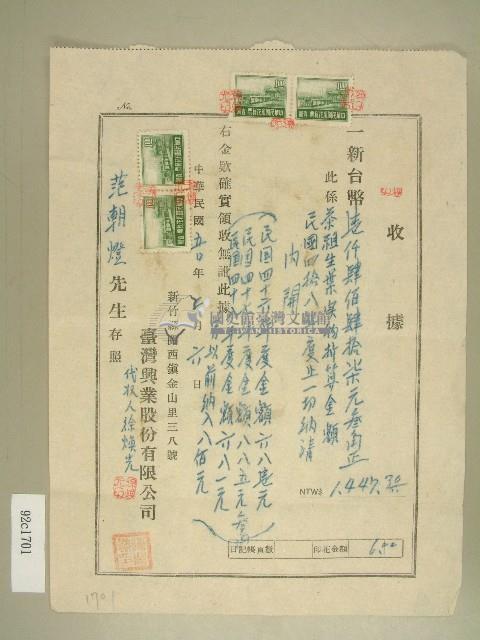 No.
收據
一新台幣壹仟肆佰肆拾柒元叁角正
NTW$ 1,447.30
此係茶租生葉実物折算金額
民國四拾八年度止一切納清
內開
民国四十六年度金額六八壱元
民国四十七年度金額八八五元
民国四十八年度金額六八一元
以前納入八佰元
右金款確實領收無訛此據
中華民國五〇年七月六日
新竹縣關西鎮金山里三八號
臺灣興業股份有限公司
代收人徐煥光
范朝燈先生存照
日記帳頁數
印花金額
國史館臺灣文獻館
TAIWAN HISTORICA
92c1701
1701